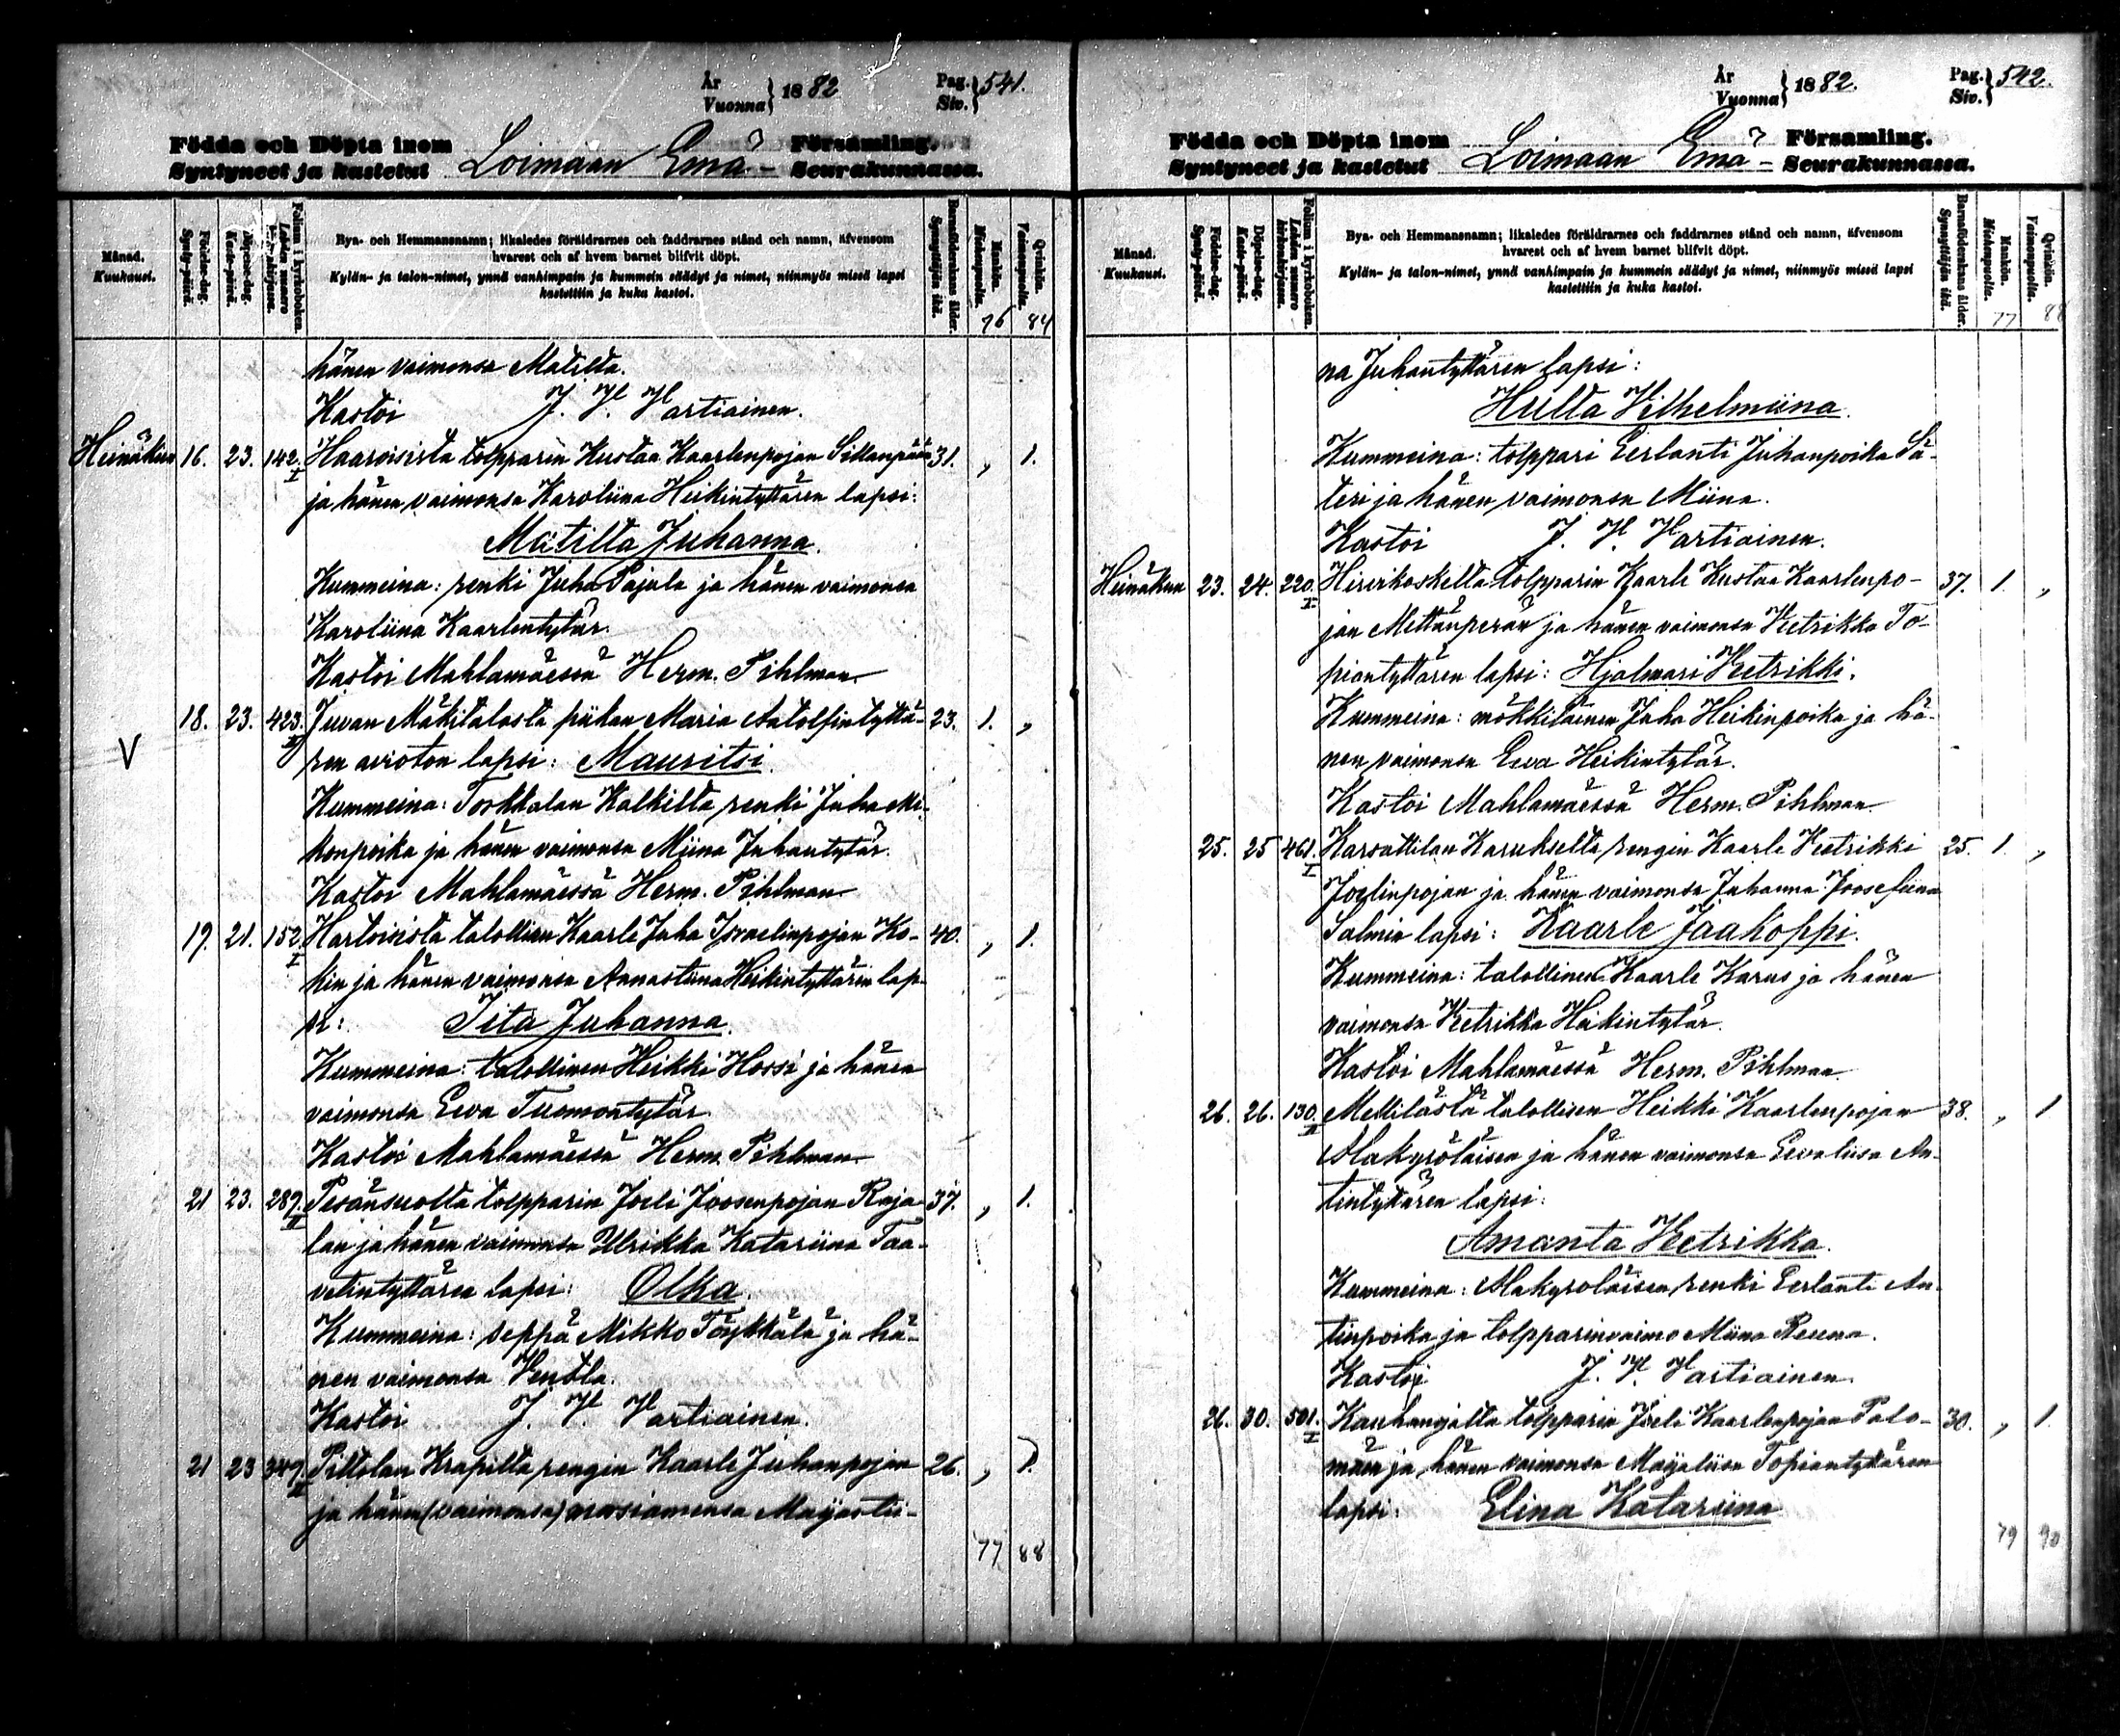 År
Vuonna } 1882
Pag.
Siv. } 541.
Födda och Döpta inom
Syntyneet ja kastetut Loimaan Emä- Församling.
Seurakunnassa.
Månad.
Kuukausi.
Födelse-dag.
Synty-päivä.
Döpelse-dag.
Kaste-päivä.
Folium i kyrkoboken.
Lehden numero kirkonkirjassa.
Bya- och Hemmansnamn; likaledes föräldrarnes och faddrarnes stånd och namn, äfvensom
hvarest och af hvem barnet blifvit döpt.
Kylän- ja talon-nimet, ynnä vanhimpain ja kummein säädyt ja nimet, niinmyös missä lapsi
kastettiin ja kuka kastoi.
Barnaföderskans ålder.
Synnyttäjän ikä.
Mankön.
Miehenpuolta.
Qvinkön.
Vaimonpuolta.
76 84
hänen vaimonsa Matilta.
Kastoi J. H. Vartiainen.
Heinäkuu 16. 23. 142. I Haaroisista tolpparin Kustaa Kaarlenpojan Sillanpään 31. „ 1.
ja hänen vaimonsa Karoliina Heikintyttären lapsi:
Matilta Juhanna.
Kummeina: renki Juha Pajula ja hänen vaimonsa
Karoliina Kaarlentytär.
Kastoi Mahlamäessä Herm. Pihlman
18. 23. 423. II Juvan Mäkitalosta piikan Maria Aatolfintyttä- 23. 1. „
V ren avioton lapsi: Mauritsi.
Kummeina: Torkkalan Kalkilta renki Juha Mi-
konpoika ja hänen vaimonsa Miina Juhantytär.
Kastoi Mahlamäessä Herm. Pihlman
19. 21. 152. I Hartoisista talollisen Kaarle Juha Israelinpojan Ko- 40. „ 1.
kin ja hänen vaimonsa Annastiina Heikintyttären lap-
si: Iita Juhanna.
Kummeina: talollinen Heikki Hossi ja hänen
vaimonsa Eewa Tuomontytär
Kastoi Mahlamäessä Herm. Pihlman
21 23. 287. II Pesänsuolta tolpparin Joeli Joosenpojan Raja- 37. „ 1.
lan ja hänen vaimonsa Ulrikka Katariina Taa-
vetintyttären lapsi: Olka.
Kummeina: seppä Mikko Töykkälä ja hä-
nen vaimonsa Venthla.
Kastoi J. H. Vartiainen.
21 23 347. II Piltolan Krapilta rengin Kaarle Juhanpojan 26. „ 1.
ja hänen (vaimonsa) morsiamensa Maijastii-
77 88
År
Vuonna } 1882.
Pag.
Siv. } 542.
Födda och Döpta inom
Syntyneet ja kastetut Loimaan Emä- Församling.
Seurakunnassa.
Månad.
Kuukausi.
Födelse-dag.
Synty-päivä.
Döpelse-dag.
Kaste-päivä.
Folium i kyrkoboken.
Lehden numero kirkonkirjassa.
Bya- och Hemmansnamn; likaledes föräldrarnes och faddrarnes stånd och namn, äfvensom
hvarest och af hvem barnet blifvit döpt.
Kylän- ja talon-nimet, ynnä vanhimpain ja kummein säädyt ja nimet, niinmyös missä lapsi
kastettiin ja kuka kastoi.
Barnaföderskans ålder.
Synnyttäjän ikä.
Mankön.
Miehenpuolta.
Qvinkön.
Vaimonpuolta.
77 88
na Juhantyttären lapsi:
Hulta Vilhelmiina.
Kummeina: tolppari Eerlanti Juhanpoika Sä-
teri ja hänen vaimonsa Miina.
Kastoi J. H. Vartiainen.
Heinäkuu 23. 24. 220. I Hirvikoskelta tolpparin Kaarle Kustaa Kaarlenpo- 37. 1. „
jan Mettänperän ja hänen vaimonsa Vetrikka To-
piantyttären lapsi: Hjalmari Vetrikki.
Kummeina: mökkiläinen Juha Heikinpoika ja hä-
nen vaimonsa Eewa Heikintytär.
Kastoi Mahlamäessä Herm. Pihlman
25. 25 461. I Karsattilan Karukselta rengin Kaarle Vetrikki 25. 1. „
Joelinpojan ja hänen vaimonsa Juhanna Joosefiina
Salmin lapsi: Kaarle Jaakoppi.
Kummeina: talollinen Kaarle Karus ja hänen
vaimonsa Vetrikka Heikintytär.
Kastoi Mahlamäessä Herm. Pihlman
26. 26. 130. II Mellilästä talollisen Heikki Kaarlenpojan 38. „ 1
Alakyröläisen ja hänen vaimonsa Eevaliisa An-
tintyttären lapsi:
Amanta Vetrikka.
Kummeina: Alakyroläisen renki Eerlanti An-
tinpoika ja tolpparinvaimo Miina Reuna.
Kastoi J. H. Vartiainen.
26. 30. 501. II Kauhanojalta tolpparin Joeli Kaarlenpojan Palo- 30. „ 1.
mäen ja hänen vaimonsa Maijaliisa Topiantyttären
lapsi: Elina Katariina
79 90